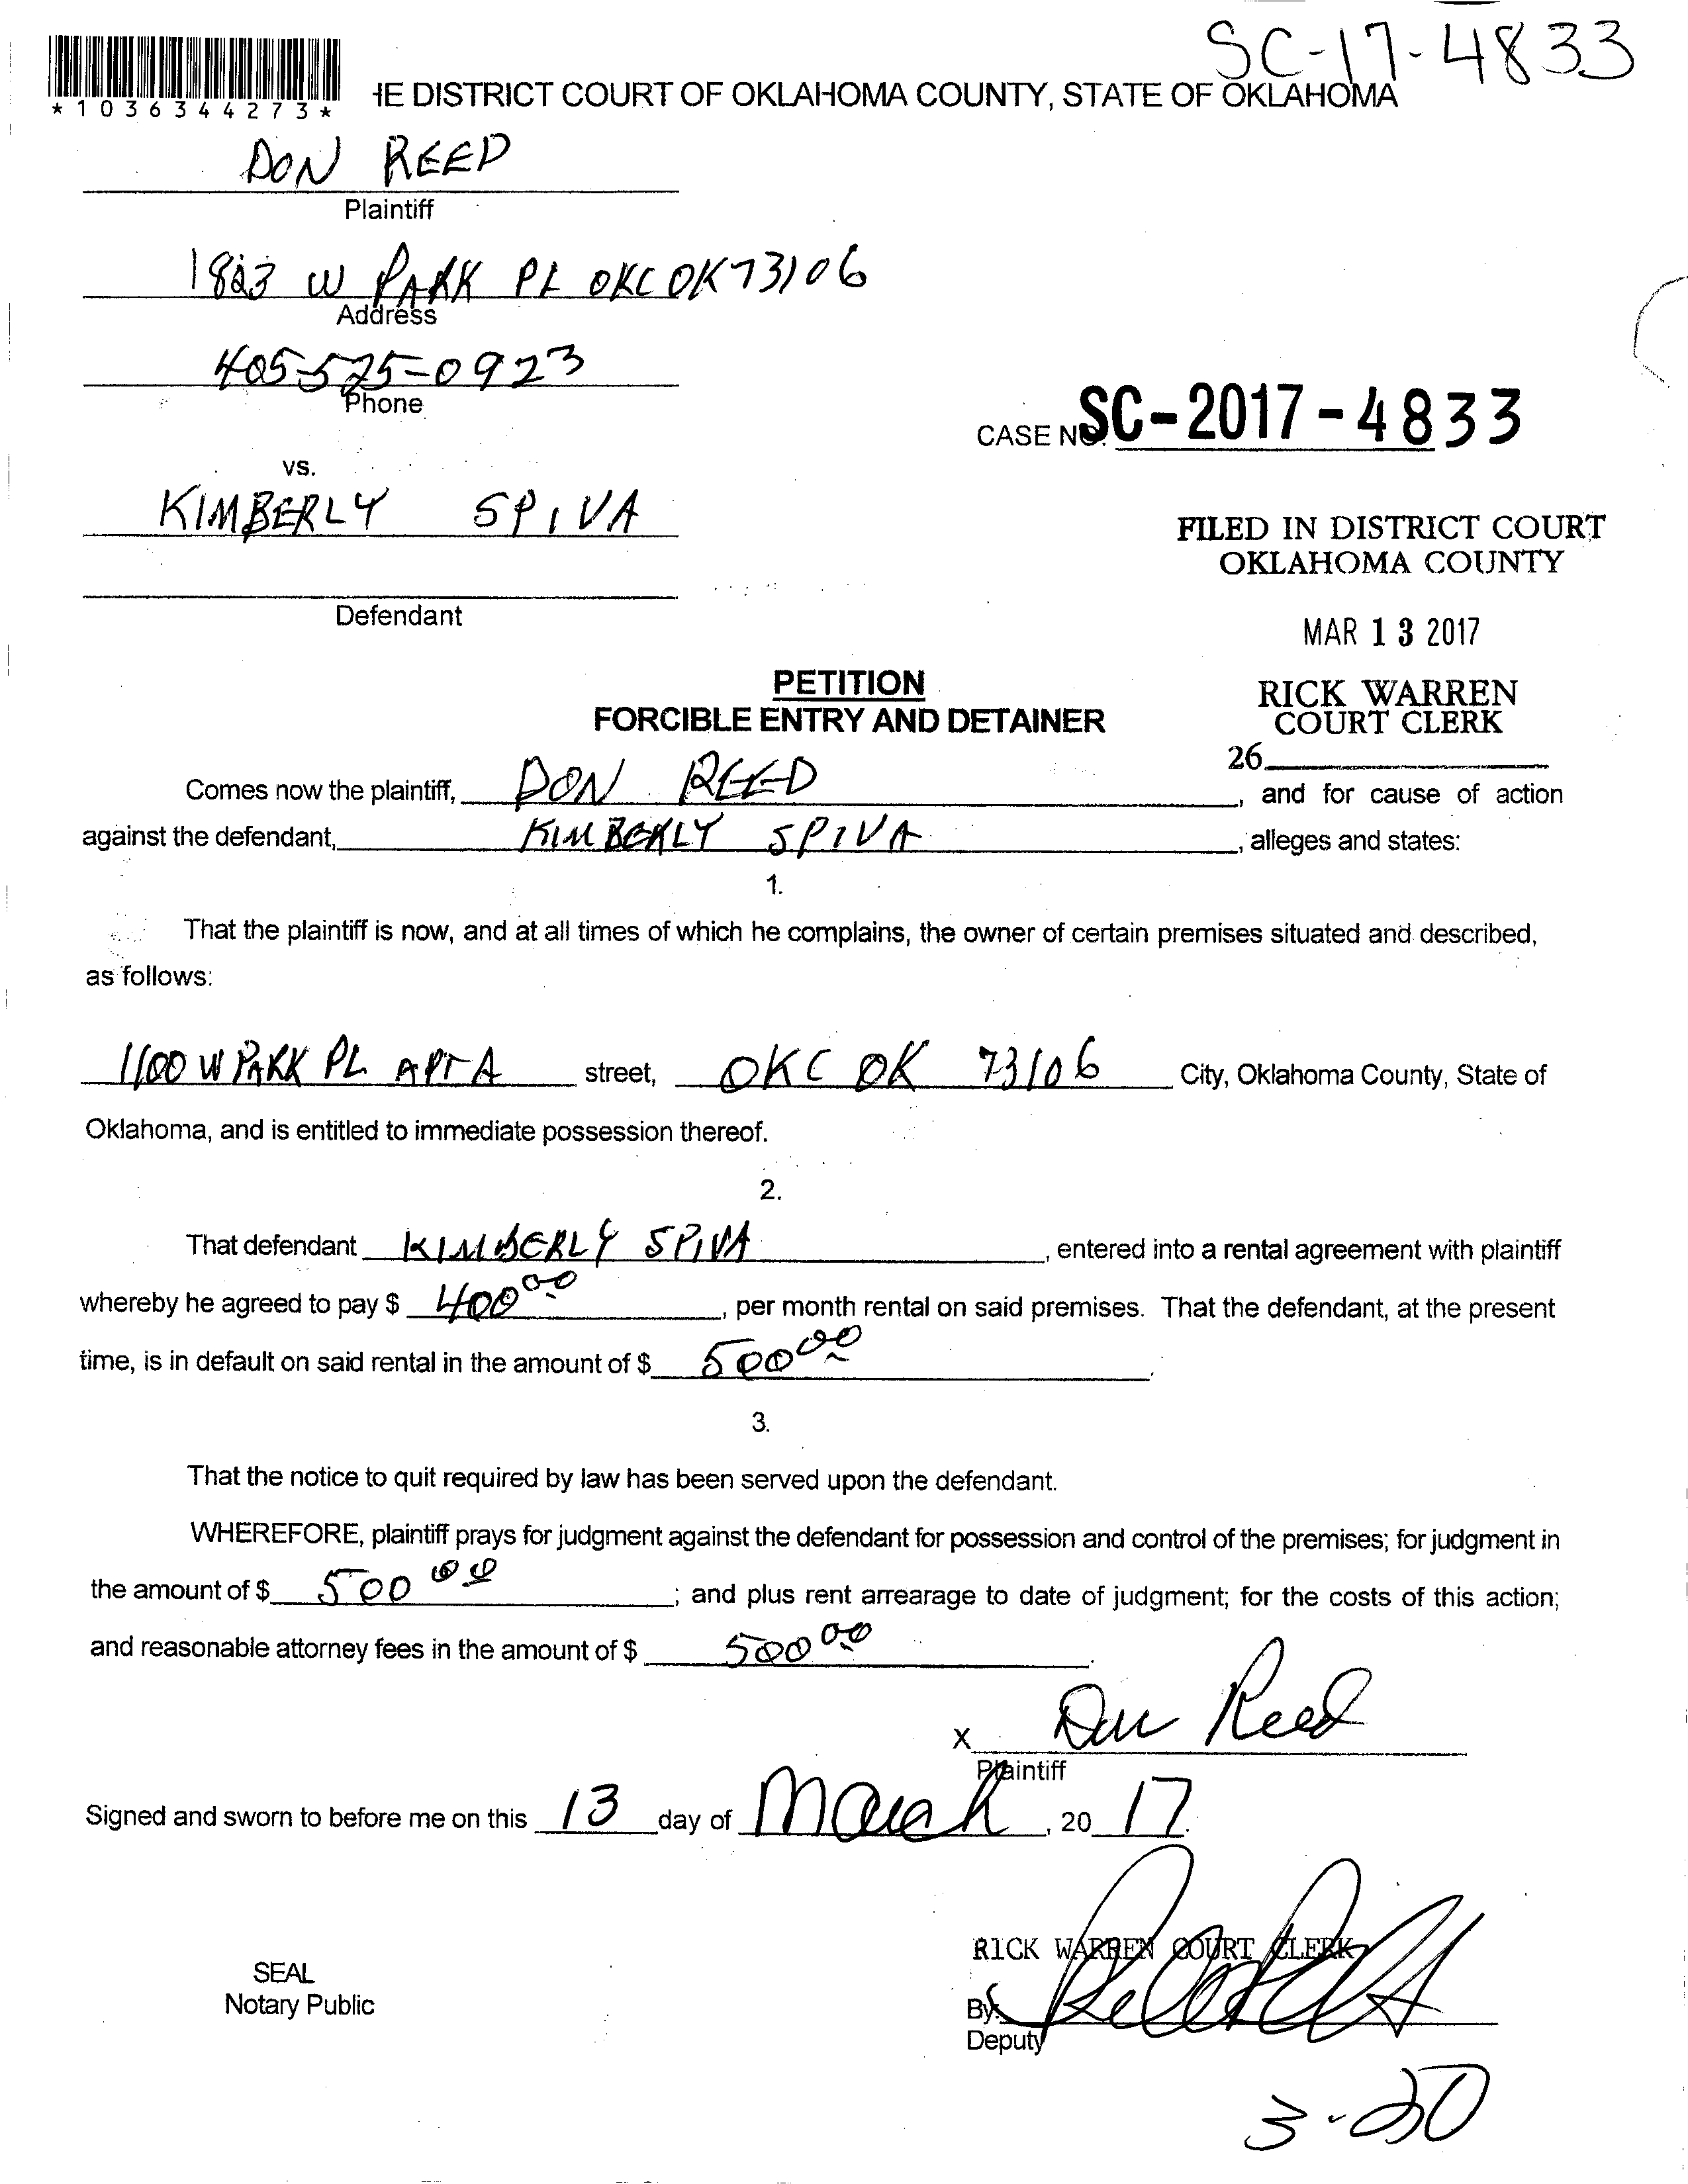 SC-17-4833
*1036344273*
HE DISTRICT COURT OF OKLAHOMA COUNTY, STATE OF OKLAHOMA
DON REED
Plaintiff
1823 W PARK PL OKC OK 73106
Address
405-525-0923
Phone
CASE NO. SC-2017-4833
vs.
KIMBERLY SPIVA
FILED IN DISTRICT COURT
OKLAHOMA COUNTY
Defendant
MAR 13 2017
PETITION
RICK WARREN
FORCIBLE ENTRY AND DETAINER
COURT CLERK
26
Comes now the plaintiff, DON REED, and for cause of action
against the defendant, KIMBERLY SPIVA, alleges and states:
1.
That the plaintiff is now, and at all times of which he complains, the owner of certain premises situated and described,
as follows:
1100 W PARK PL APT A street, OKC OK 73106 City, Oklahoma County, State of
Oklahoma, and is entitled to immediate possession thereof.
2.
That defendant KIMBERLY SPIVA, entered into a rental agreement with plaintiff
whereby he agreed to pay $ 400 00, per month rental on said premises. That the defendant, at the present
time, is in default on said rental in the amount of $ 500 00.
3.
That the notice to quit required by law has been served upon the defendant.
WHEREFORE, plaintiff prays for judgment against the defendant for possession and control of the premises; for judgment in
the amount of $ 500 00; and plus rent arrearage to date of judgment; for the costs of this action;
and reasonable attorney fees in the amount of $ 500 00.
X Don Reed
Plaintiff
Signed and sworn to before me on this 13 day of March, 2017.
RICK WARREN COURT CLERK
SEAL
Notary Public
By:
Deputy
3-20